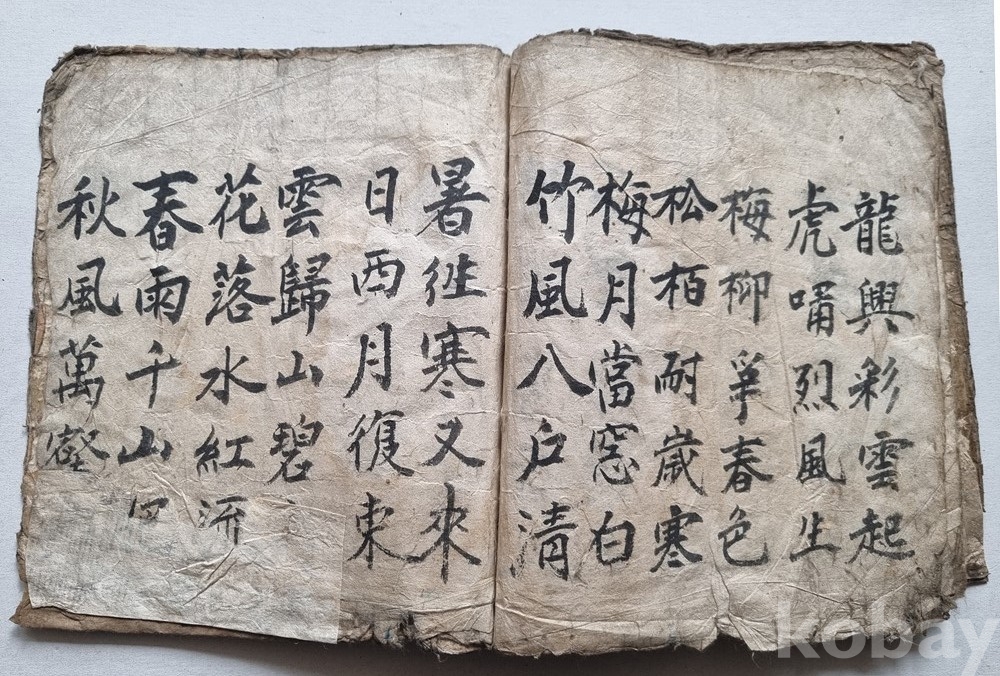 龍興彩雲起
虎嘯烈風生
梅柳爭春色
松栢耐歲寒
梅月當窓白
竹風八戶清
暑徃寒又來
日西月復東
雲歸山碧
花落水紅流
春雨千山
秋風萬壑
kobay